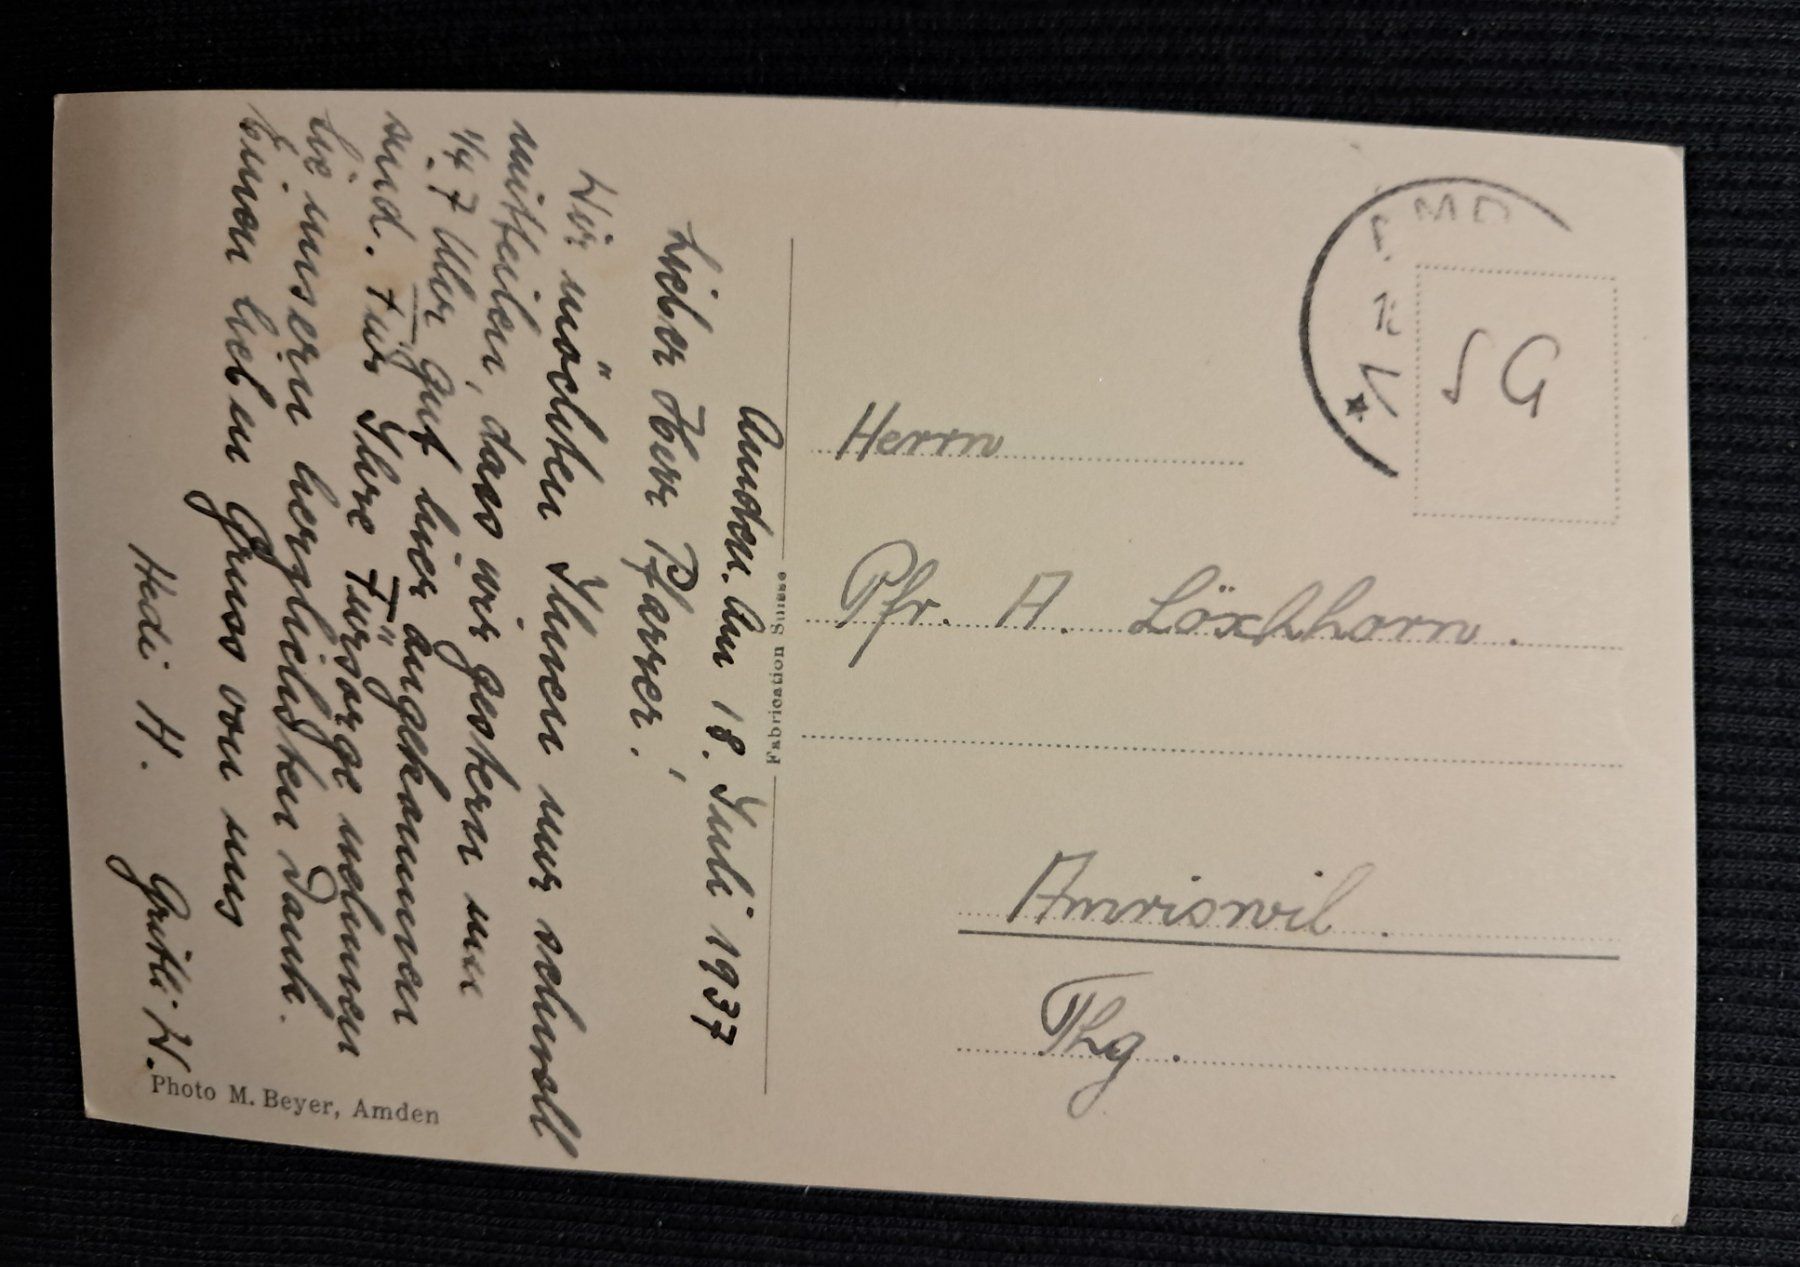 Amden. Am 18. Juli 1937
Lieber Herr Pfarrer!
Wir möchten Ihnen nur schnell
mitteilen, dass wir gestern um
1/4 7 Uhr gut hier angekommen
sind. Für Ihre Fürsorge nehmen
Sie unsern herzlichsten Dank.
Einen lieben Gruss von uns
Hedi H. Gritli W.
Photo M. Beyer, Amden
Fabrication Suisse
Herrn
Pfr. A. Löschhorn.
Amriswil.
Thg.